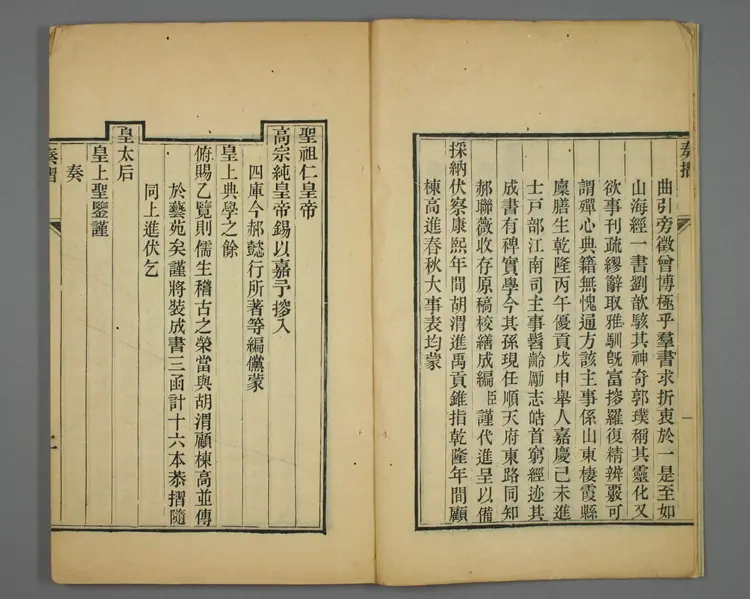 奏摺
曲引旁徵曾博極乎羣書求折衷於一是至如
山海經一書劉歆駭其神奇郭璞稱其靈化又
欲事刊疏繆辭取雅馴旣富搜羅復精辨覈可
謂殫心典籍無愧通方該主事係山東棲霞縣
廩膳生乾隆丙午優貢戊申舉人嘉慶己未進
士戶部江南司主事髫齡勵志皓首窮經迹其
成書有裨實學今其孫現任順天府東路同知
郝聯薇收存原稿校繕成編臣謹代進呈以備
採納伏察康熙年間胡渭進禹貢錐指乾隆年間顧
棟高進春秋大事表均蒙
聖祖仁皇帝
高宗純皇帝錫以嘉予搜入
四庫今郝懿行所著等編儻蒙
皇上典學之餘
俯賜乙覽則儒生稽古之榮當與胡渭顧棟高並傳
於藝苑矣謹將裝成書三函計十六本恭摺隨
同上進伏乞
皇太后
皇上聖鑒謹
奏
奏摺